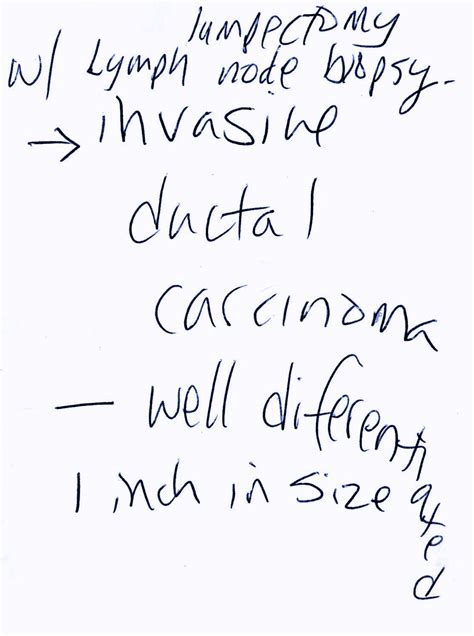 lumpectomy
w/ Lymph node biopsy.
→ invasive
ductal
carcinoma
— well diferentiated
1 inch in size